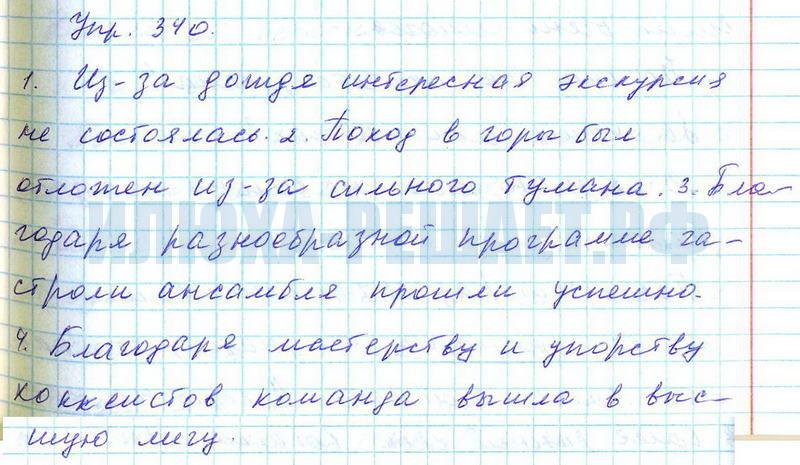 Упр. 340.
1. Из-за дождя интересная экскурсия
не состоялась. 2. Поход в горы был
отложен из-за сильного тумана. 3. Бла-
ИЛЮХА-РЕШАЕТ.РФ
годаря разнообразной программе га-
строли ансамбля прошли успешно.
4. Благодаря мастерству и упорству
хоккеистов команда вышла в выс-
шую лигу.